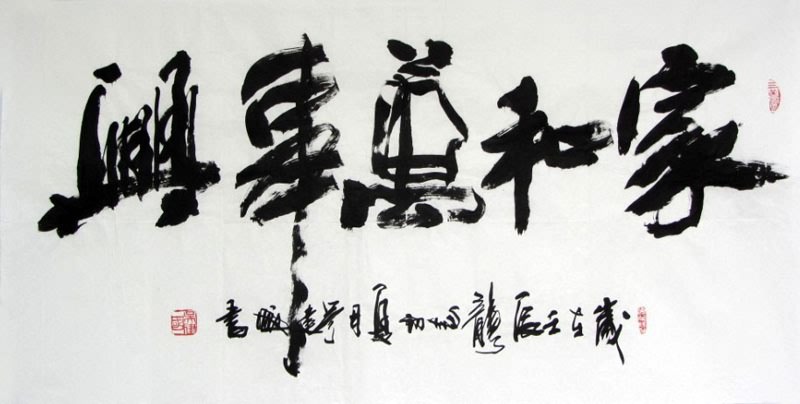 家和萬事興
歲在壬辰龍年初夏月書